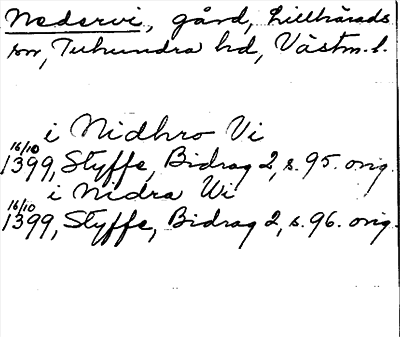 Nedervi, gård, Lillhärads
sn, Tuhundra hd, Västm. l.
i Nidhro Vi
16/10 1399, Styffe, Bidrag 2, s. 95. orig.
i Nidra Wi
16/10 1399, Styffe, Bidrag 2, s. 96. orig.